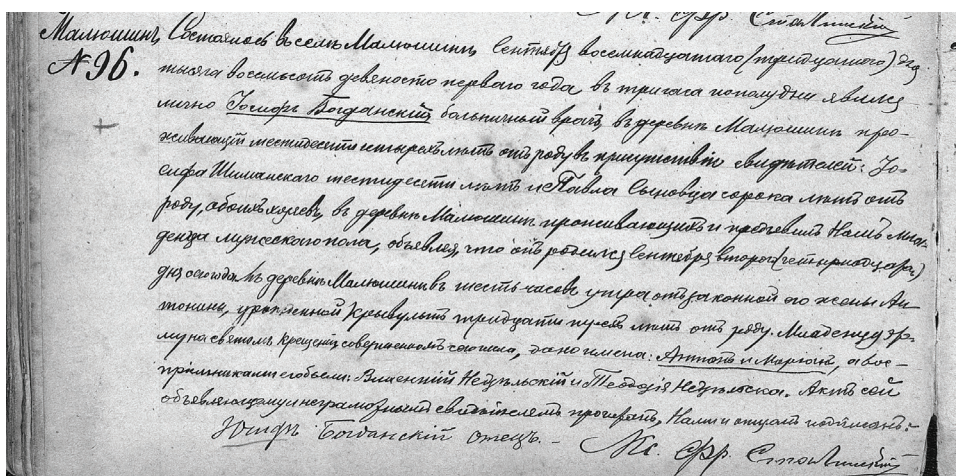 Кс. Фр. Столинский
Малюшинъ Состоялось въ селѣ Малюшинъ, Сентября восемнадцатаго (тридцатаго) дня
№ 96. тысяча восемьсотъ девяносто перваго года въ три часа пополудни явился
лично Іосифъ Богданскій, больничный врачъ, въ деревнѣ Малюшинъ про-
живающій шестидесяти четырехъ лѣтъ отъ роду въ присутствіи свидѣтелей: Іо-
сифа Шиманскаго шестидесяти лѣтъ и Павла Сыновца сорока лѣтъ отъ
роду, обоихъ въ деревнѣ Малюшинъ проживающихъ и предъявилъ Намъ мла-
денца мужескаго пола, объявляя, что онъ родился Сентября втораго (четырнадцатаго)
дня сего года въ деревнѣ Малюшинъ въ шесть часовъ утра отъ законной его жены Ан-
тонины, урожденной Крывультъ тридцати лѣтъ отъ роду. Младенцу э-
му на святомъ крещеніи совершенномъ сего числа, дано имена: Антонъ и Маріанъ, а вос-
пріемниками его были: Викентій Недзѣльскій и Теодозія Недзѣльска. Актъ сей
объявляющему и неграмотнымъ свидѣтелямъ прочтенъ, Нами и отцемъ подписанъ:
Юзифъ Богданскій отецъ. – Кс. Фр. Столинский